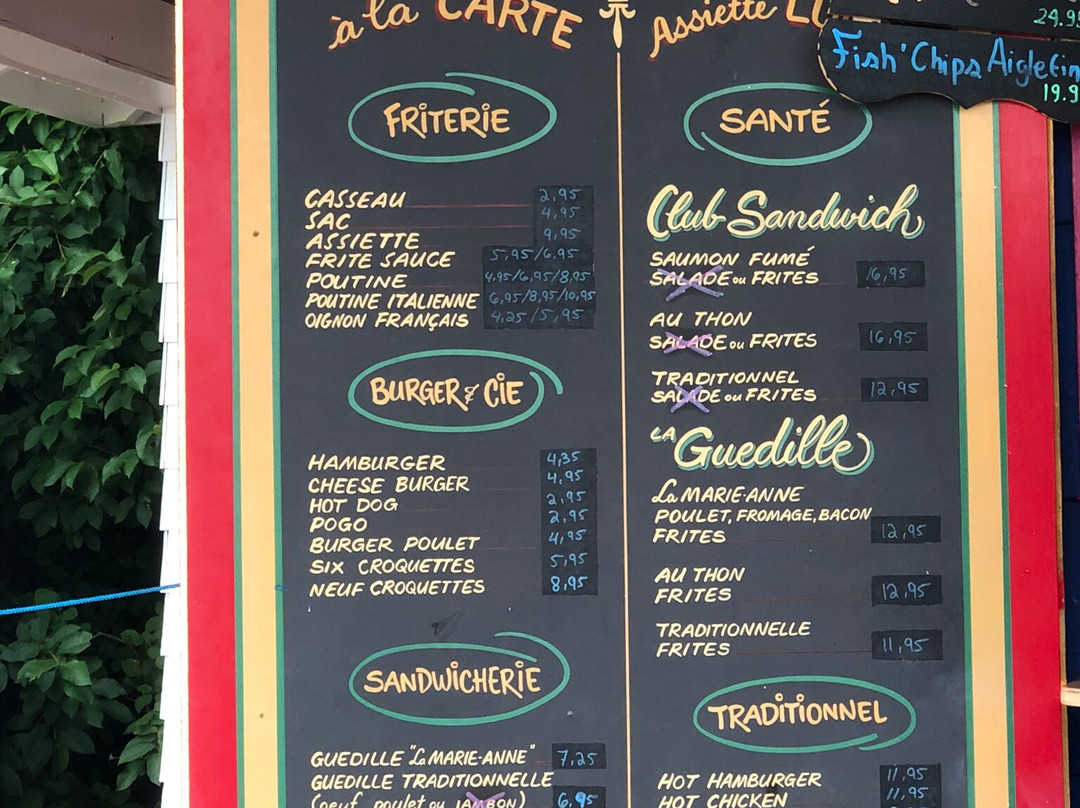 à la CARTE
FRITERIE
CASSEAU 2,95
SAC 4,95
ASSIETTE 9,95
FRITE SAUCE 5,95/6,95
POUTINE 4,95/6,95/8,95
POUTINE ITALIENNE 6,95/8,95/10,95
OIGNON FRANÇAIS 4,25/5,95
BURGER & CIE
HAMBURGER 4,35
CHEESE BURGER 4,95
HOT DOG 2,95
POGO 2,95
BURGER POULET 4,95
SIX CROQUETTES 5,95
NEUF CROQUETTES 8,95
SANDWICHERIE
GUEDILLE "La MARIE-ANNE" 7,25
GUEDILLE TRADITIONNELLE
(oeuf, poulet ou JAMBON) 6,95
Assiette
SANTÉ
Club Sandwich
SAUMON FUMÉ
SALADE ou FRITES 16,95
AU THON
SALADE ou FRITES 16,95
TRADITIONNEL
SALADE ou FRITES 12,95
LA Guedille
La MARIE-ANNE
POULET, FROMAGE, BACON
FRITES 12,95
AU THON
FRITES 12,95
TRADITIONNELLE
FRITES 11,95
TRADITIONNEL
HOT HAMBURGER 11,95
HOT CHICKEN 11,95
Fish'Chips Aiglefin